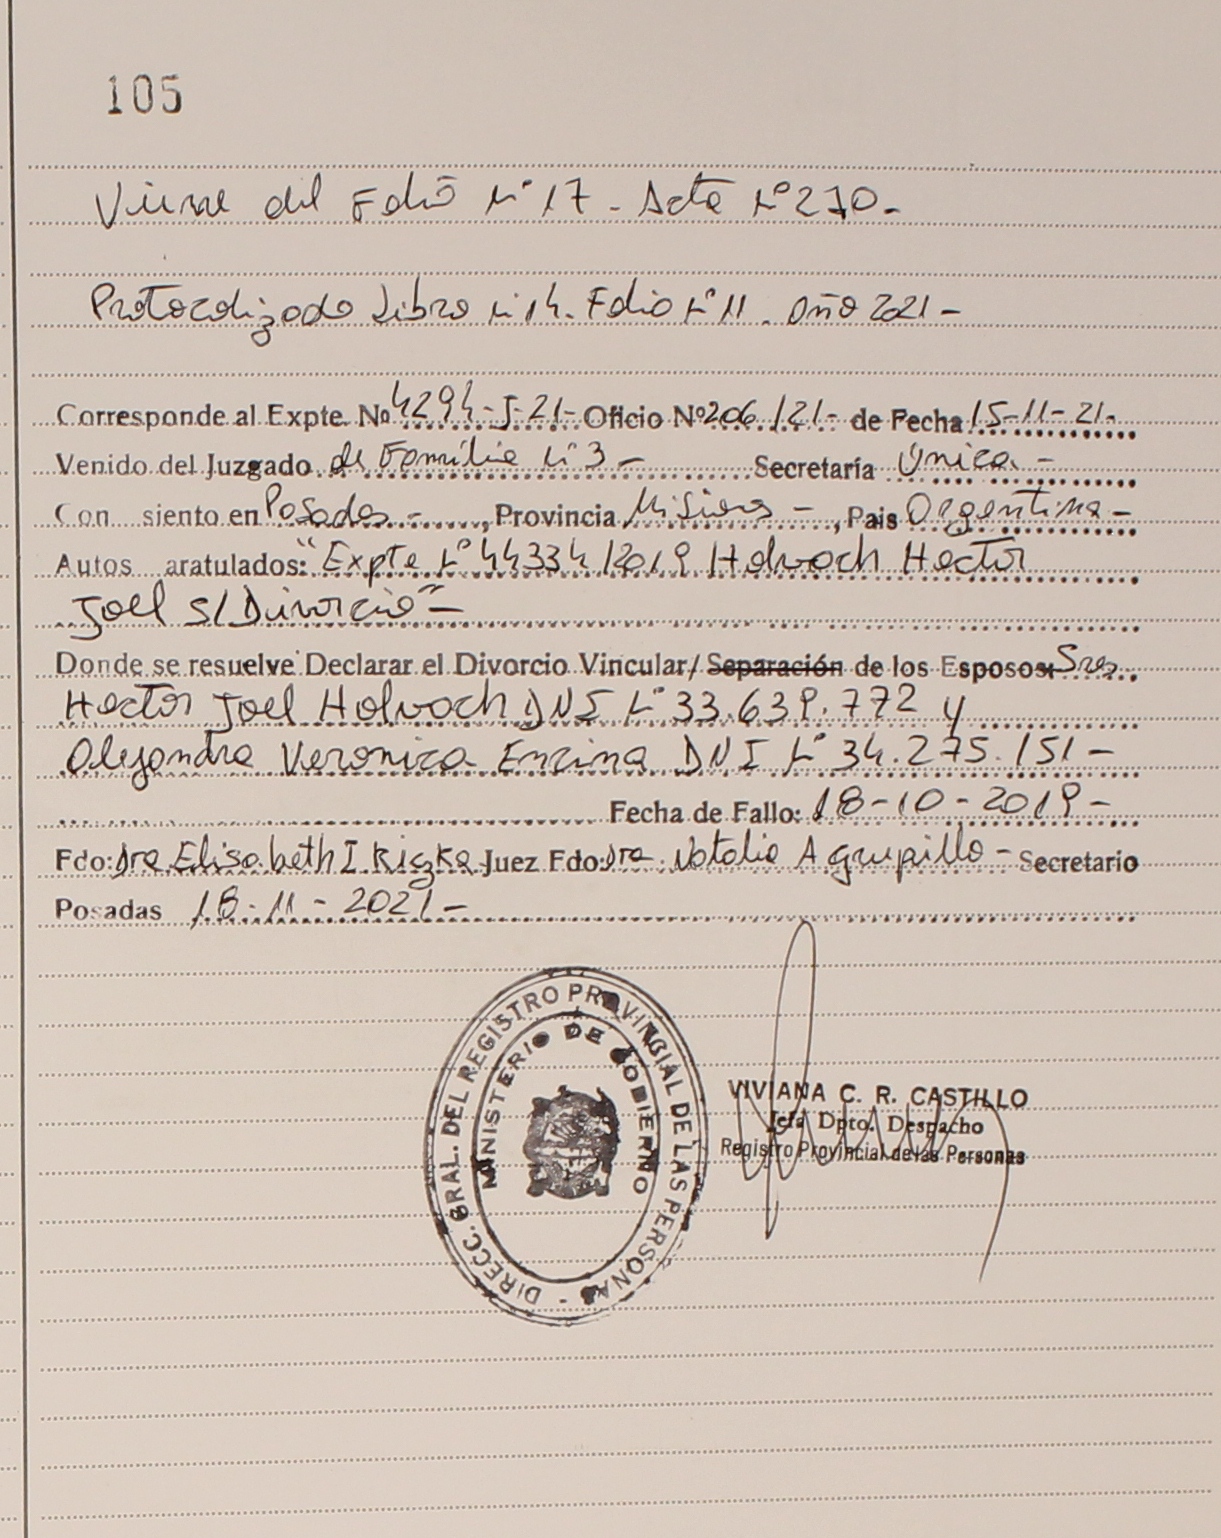 105
Viene del Folio N° 17 - Acta N° 270 -
Protocolizado Libro N° 14. Folio N° 11. Año 2021 -
Corresponde al Expte. Nº 4294-J-21- Oficio Nº 206/21- de Fecha 15-11-21-
Venido del Juzgado de Familia N° 3 - Secretaría Unica -
Con siento en Posadas -, Provincia Misiones -, Pais Argentina -
Autos aratulados: "Expte N° 44334/2019 Holvoch Hector
Joel S/Divorcio" -
Donde se resuelve Declarar el Divorcio Vincular/ Separación de los Esposos: Sres.
Hector Joel Holvoch DNI N° 33.639.772 y
Alejandra Veronica Encina DNI N° 34.275.151 -
Fecha de Fallo: 18-10-2019 -
Fdo: Dra. Elisabeth I. Kiczka Juez Fdo: Dra. Natalia A grupillo - Secretario
Posadas 18-11-2021 -
DIRECC. GRAL. DEL REGISTRO PROVINCIAL DE LAS PERSONAS -
MINISTERIO DE GOBIERNO
VIVIANA C. R. CASTILLO
Jefa Dpto. Despacho
Registro Provincial de las Personas